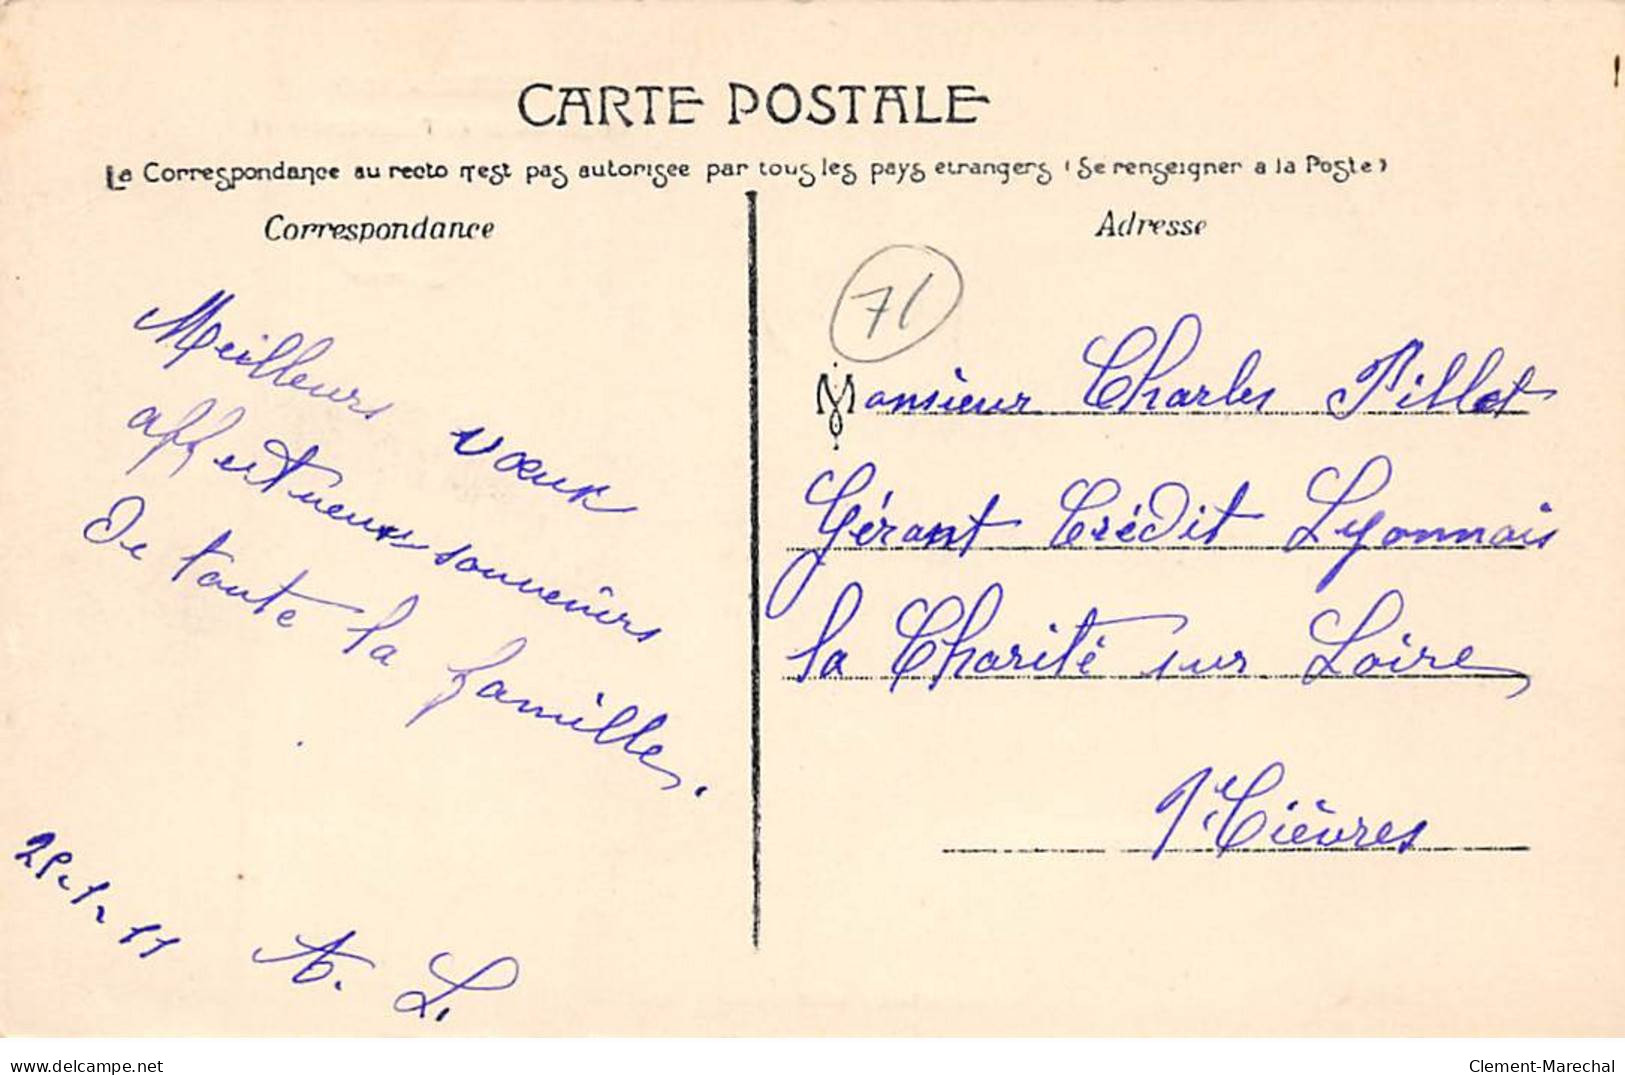 CARTE POSTALE
La Correspondance au recto n'est pas autorisee par tous les pays etrangers (Se renseigner a la Poste)
Correspondance
Meilleurs vœux
affectueux souvenirs
De toute la famille.
A. L.
Adresse
71
Monsieur Charles Pillet
Gérant Crédit Lyonnais
la Charité sur Loire
Nièvres
delcampe.net
Clement-Marechal